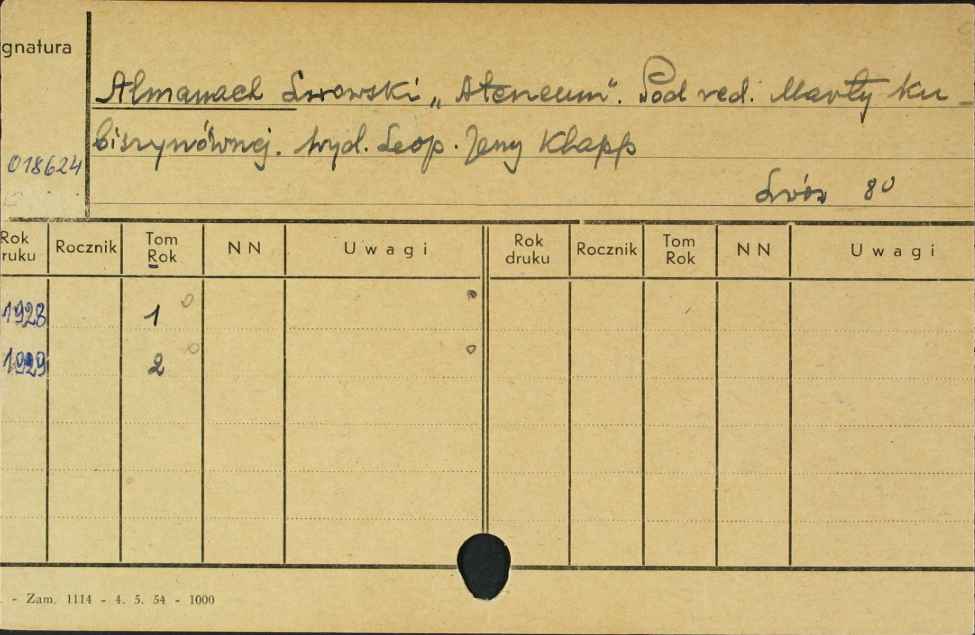 gnatura
Almanach Lwowski „Ateneum". Pod red. Marty Ku-
biszynównej. Wyd. Leop. Jerzy Klapp
018624
Lwów 80
Rok druku Rocznik Tom Rok NN Uwagi Rok druku Rocznik Tom Rok NN Uwagi
1928 1
1929 2
. - Zam. 1114 - 4. 5. 54 - 1000